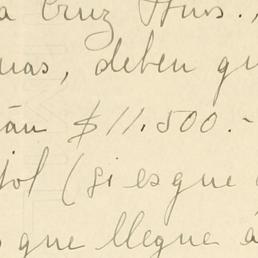 a Cruz Hnos.,
uas, deben qu
án $11.500.-
tol (si es que
que llegue á